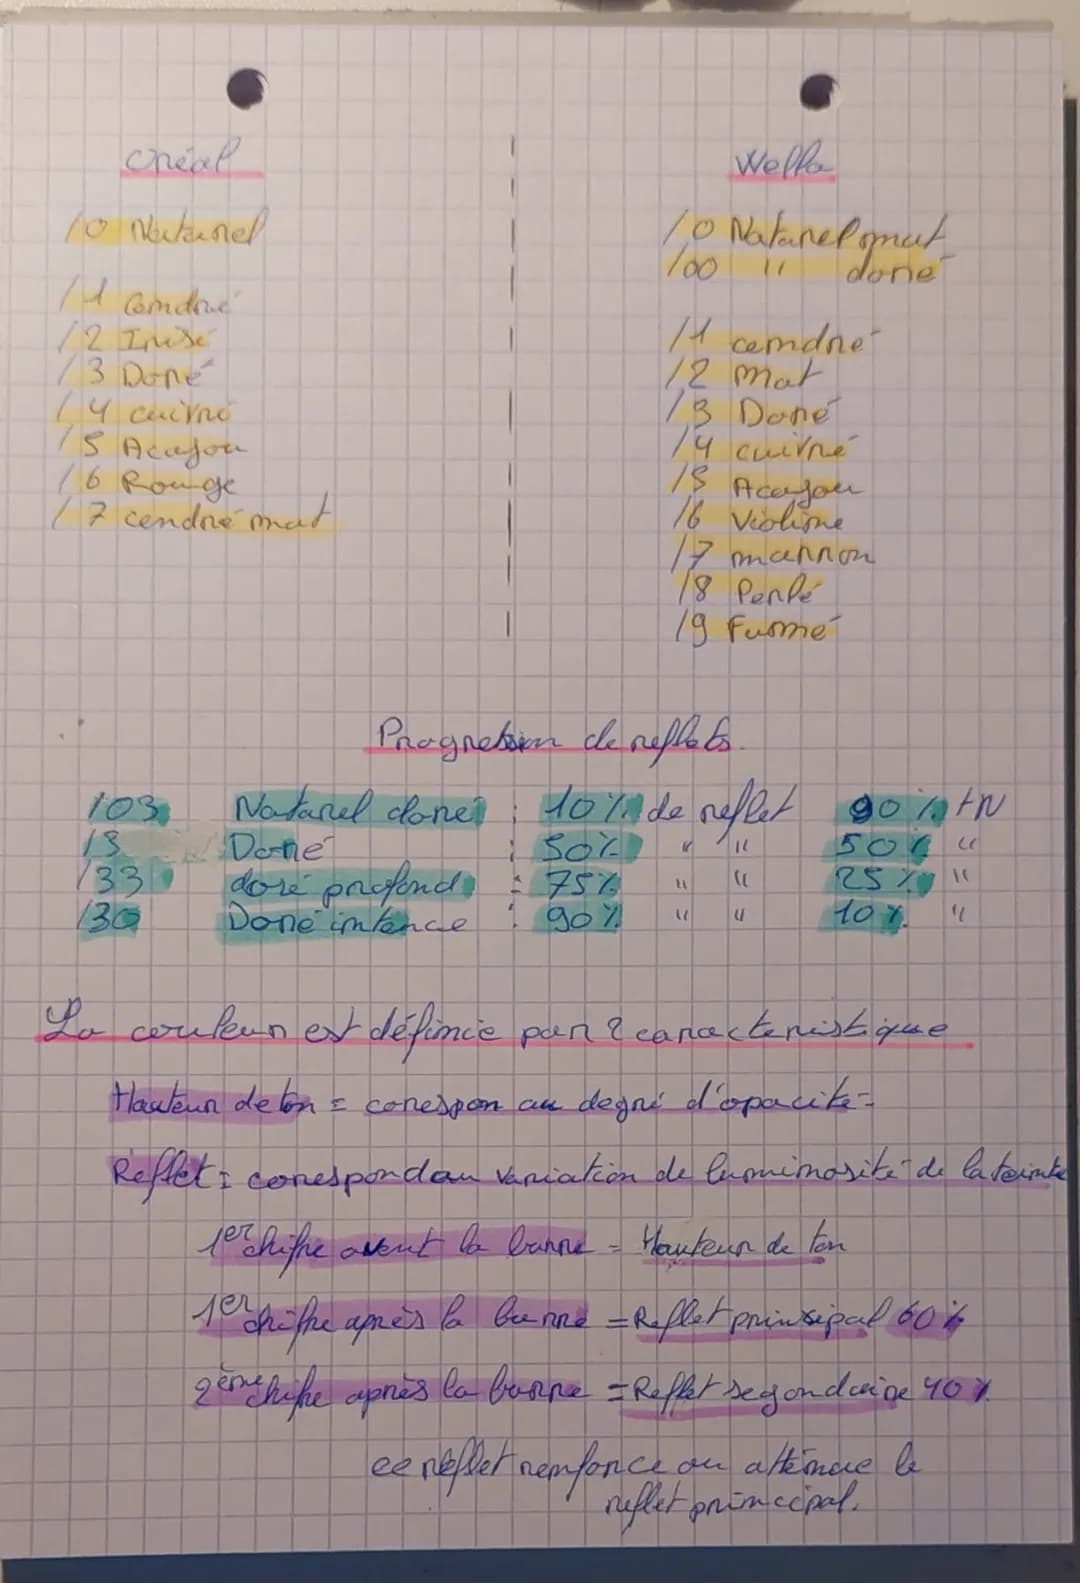 Oréal
/0 Naturel
/1 Cendré
/2 Irisé
/3 Doré
/4 cuivré
/5 Acajou
/6 Rouge
/7 cendré mat
Wella
/0 Naturel mat
/00 " doré
/1 cendré
/2 mat
/3 Doré
/4 cuivré
/5 Acajou
/6 Violine
/7 marron
/8 Perlé
/9 Fumé
Progression de reflets.
/03 Naturel doré : 10% de reflet 90% HN
/3 Doré : 50% " " 50% "
/33 doré profond : 75% " " 25% "
/30 Doré intence : 90% " " 10% "
La couleur est définie par 2 caracteristique
Hauteur de ton = correspon au degré d'opacité
Reflet = correspond au variation de luminosité de la teinte
1er chifre avant la barre = Hauteur de ton
1er chifre après la barre = Reflet prinsipal 60%
2ème chifre après la barre = Reflet segondaire 40%
ce reflet renforce ou attenue le
reflet principal.